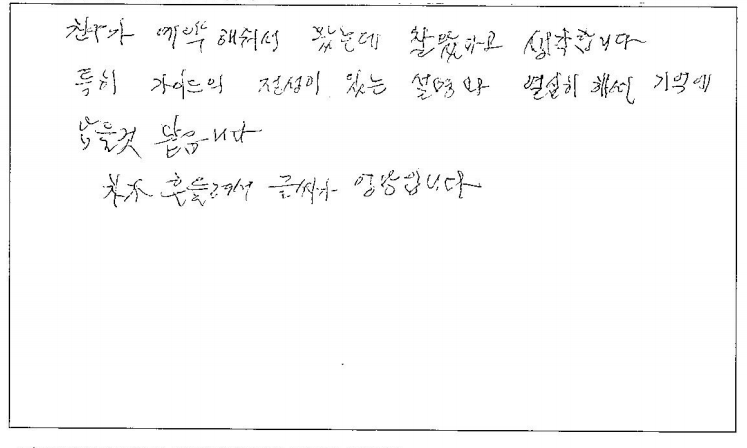 친구가 예약해줘서 왔는데 잘왔다고 생각합니다
특히 가이드의 정성이 있는 설명과 열심히 해서 기억에
남을것 같습니다
차가 흔들려서 글씨가 엉망입니다